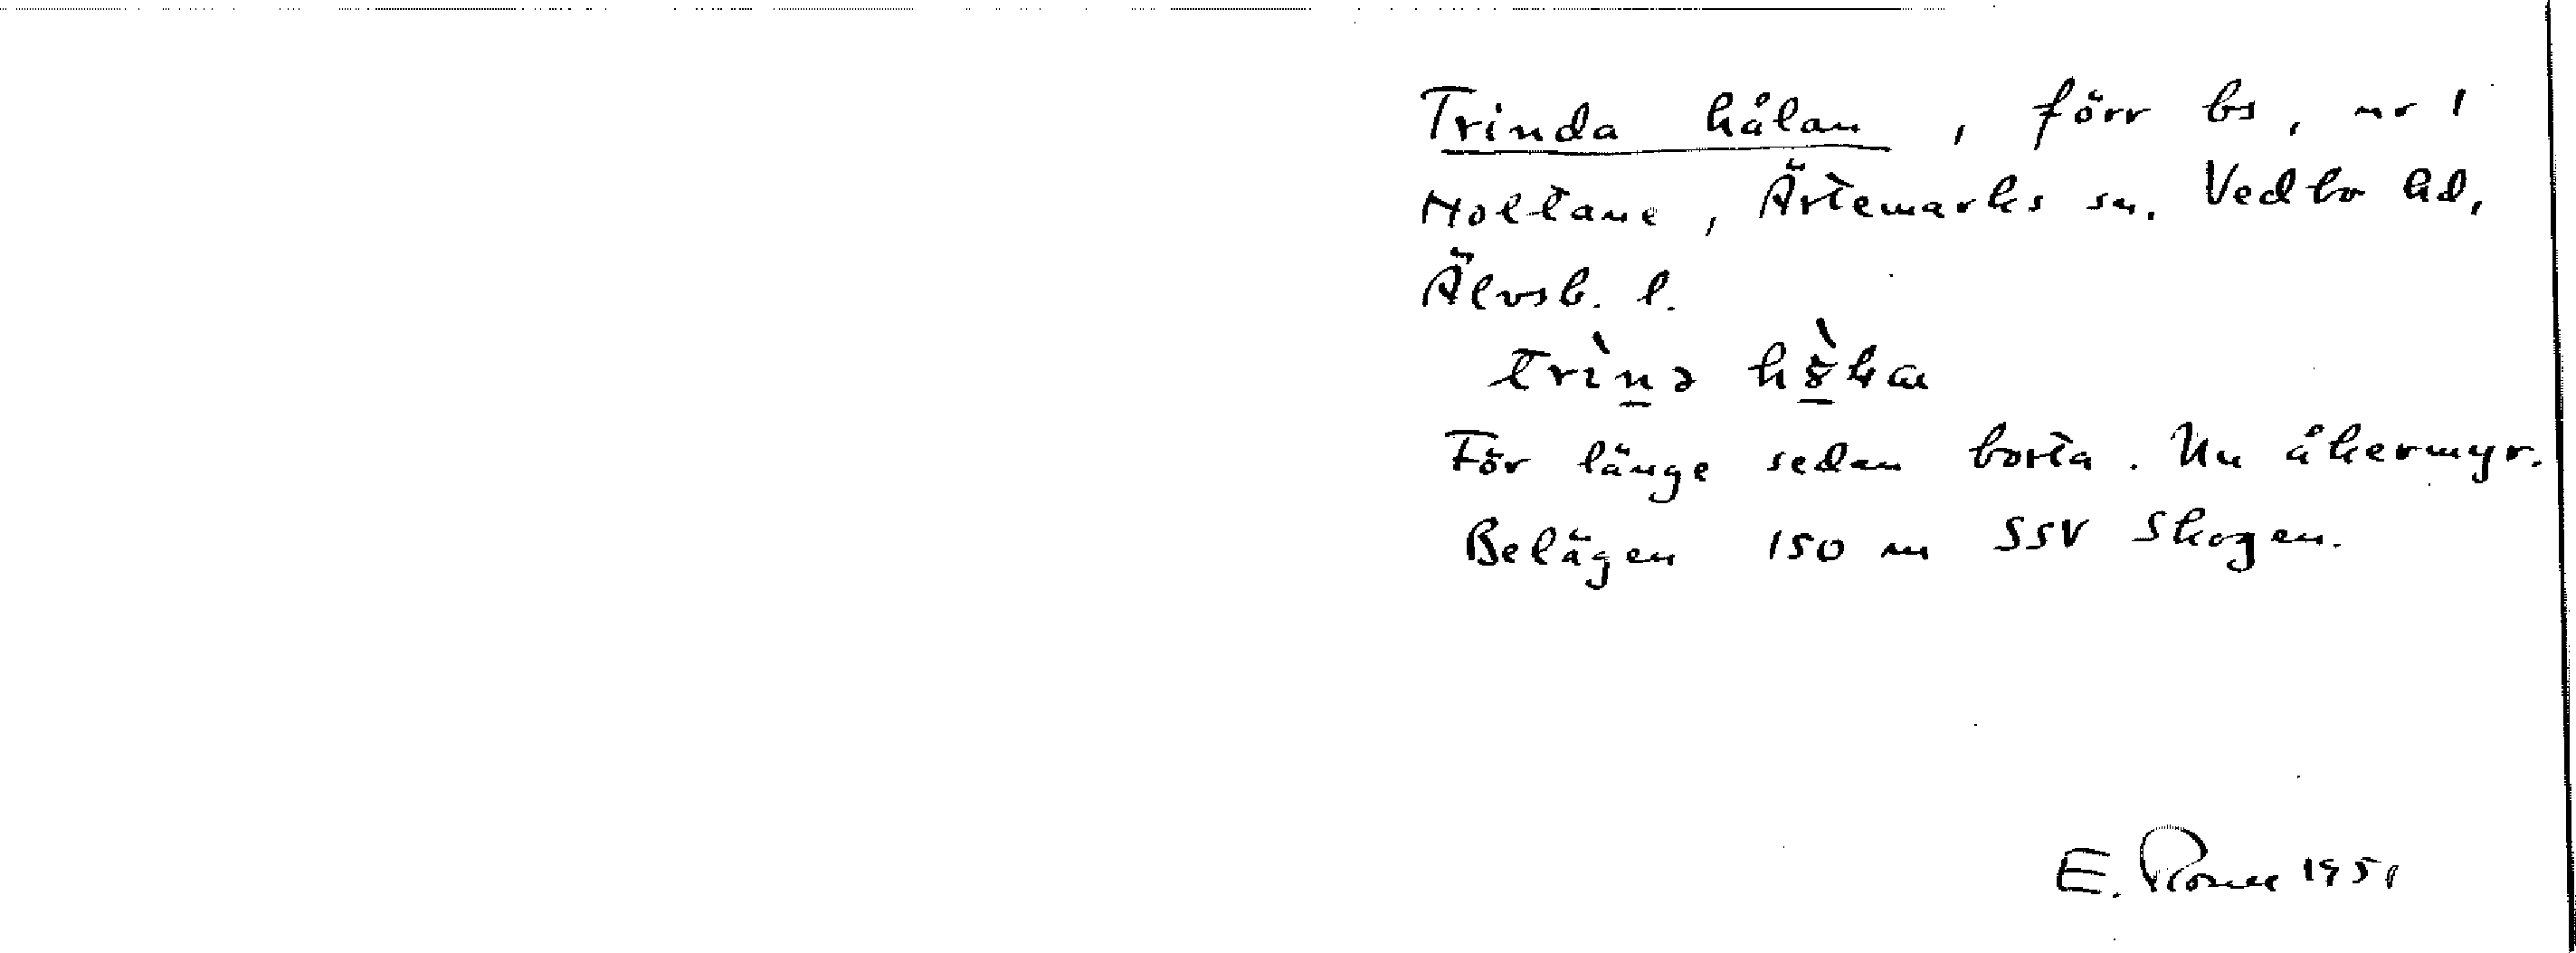 Trinda hålan, förr bs, nr 1
Holtane, Ärtemarks sn. Vedbo hd,
Älvsb. l.
För länge sedan borta. Nu åkermyr.
Belägen 150 m SSV Skogen.
E. 1951